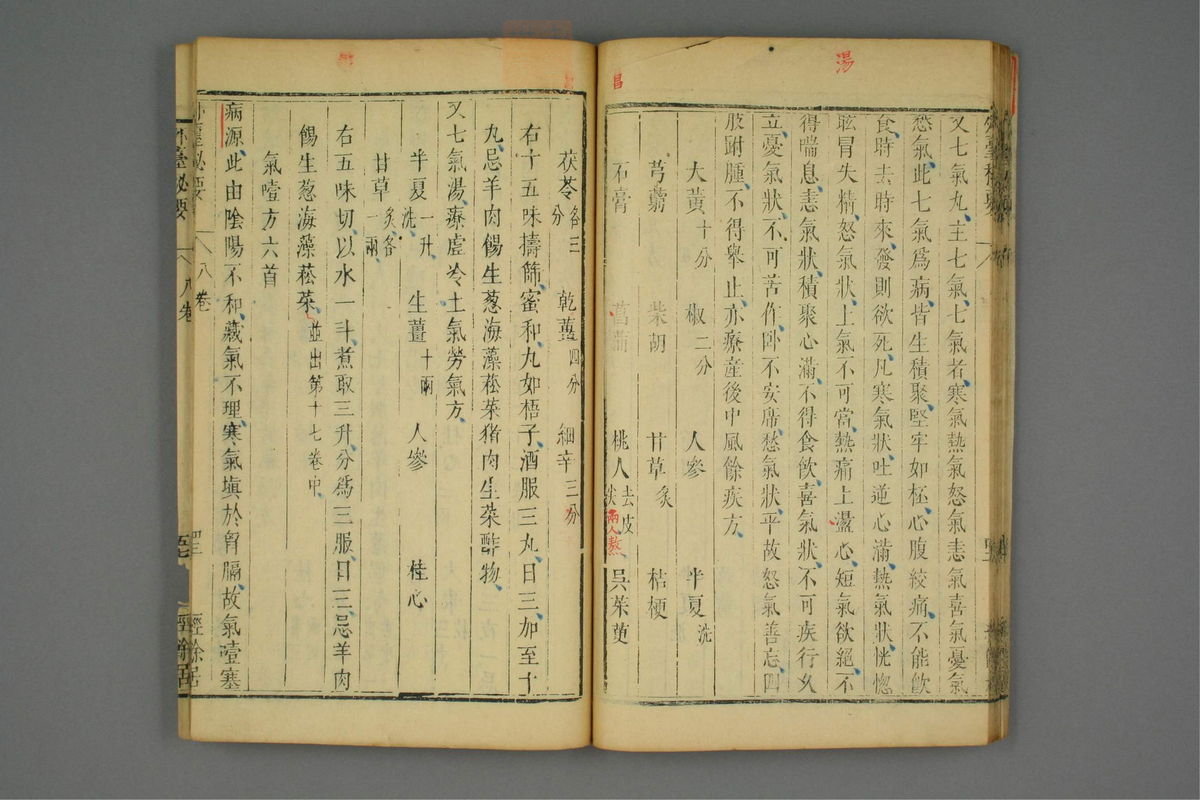 湯
又七氣丸、主七氣、七氣者寒氣熱氣怒氣恚氣喜氣憂氣
愁氣、此七氣爲病、皆生積聚、堅牢如杯、心腹絞痛、不能飲
食、時去時來、發則欲死、凡寒氣狀、吐逆心滿、熱氣狀、恍惚
眩冒失精、怒氣狀、上氣不可當、熱痛上盪心、短氣欲絕不
得喘息、恚氣狀、積聚心滿、不得食飲、喜氣狀、不可疾行久
立、憂氣狀、不可苦作、卧不安席、愁氣狀、平故怒氣善忘、四
肢胕腫、不得舉止、亦療産後中風餘疾方、
大黃十分 椒二分 人參 半夏洗
芎藭 柴胡 甘草炙 桔梗
石膏 菖蒲 桃人去皮 吳茱萸
兩人熬
昌
茯苓各三分 乾薑四分 細辛三分
右十五味擣篩、蜜和、丸如梧子、酒服三丸、日三、加至十
丸、忌羊肉餳生葱海藻菘菜猪肉生菜酢物、
又七氣湯、療虛冷上氣勞氣方、
半夏一升洗 生薑十兩 人參 桂心
甘草一兩炙各
右五味切、以水一斗、煮取三升、分爲三服、日三、忌羊肉
餳生葱海藻菘菜、並出第十七卷中
氣噎方六首
病源、此由陰陽不和、藏氣不理、寒氣塡於胷膈、故氣噎塞
外臺秘要 八卷 經餘居
外臺秘要 八卷 經餘居